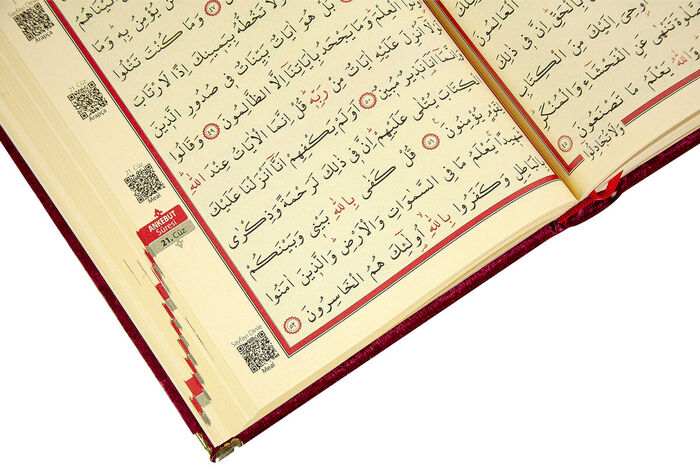 العَالَمِينَ
بِالْحَقِّ اِنَّ فِي ذٰلِكَ
اُوحِيَ اِلَيْكَ مِنَ الْكِتَابِ
تَنْهٰى عَنِ الْفَحْشَاءِ وَالْمُنْكَرِ
اللّٰهُ يَعْلَمُ مَا تَصْنَعُونَ ٤٥
وَلَا تُجَادِلُوا
مَنْ يُؤْمِنُ بِهِ وَمَا
٤٧ وَمَا كُنْتَ تَتْلُوا
وَلَا تَخُطُّهُ بِيَمِينِكَ اِذًا لَارْتَابَ
بَلْ هُوَ اٰيَاتٌ بَيِّنَاتٌ فِي صُدُورِ الَّذِينَ
الْعِلْمَ وَمَا يَجْحَدُ بِاٰيَاتِنَا اِلَّا الظَّالِمُونَ ٤٩ وَقَالُوا
اُنْزِلَ عَلَيْهِ اٰيَاتٌ مِنْ رَبِّهِ قُلْ اِنَّمَا الْاٰيَاتُ عِنْدَ اللّٰهِ
وَاِنَّمَا اَنَا نَذِيرٌ مُبِينٌ ٥٠ اَوَلَمْ يَكْفِهِمْ اَنَّا اَنْزَلْنَا عَلَيْكَ
الْكِتَابَ يُتْلٰى عَلَيْهِمْ اِنَّ فِي ذٰلِكَ لَرَحْمَةً وَذِكْرٰى
يُؤْمِنُونَ ٥١ قُلْ كَفٰى بِاللّٰهِ بَيْنِي وَبَيْنَكُمْ
شَهِيدًا يَعْلَمُ مَا فِي السَّمٰوَاتِ وَالْاَرْضِ وَالَّذِينَ اٰمَنُوا
بِالْبَاطِلِ وَكَفَرُوا بِاللّٰهِ اُولٰئِكَ هُمُ الْخَاسِرُونَ ٥٢
Arapça
Arapça
Meal
ANKEBUT
Sûresi
21. Cüz
Sayfayı Dinle
Meal